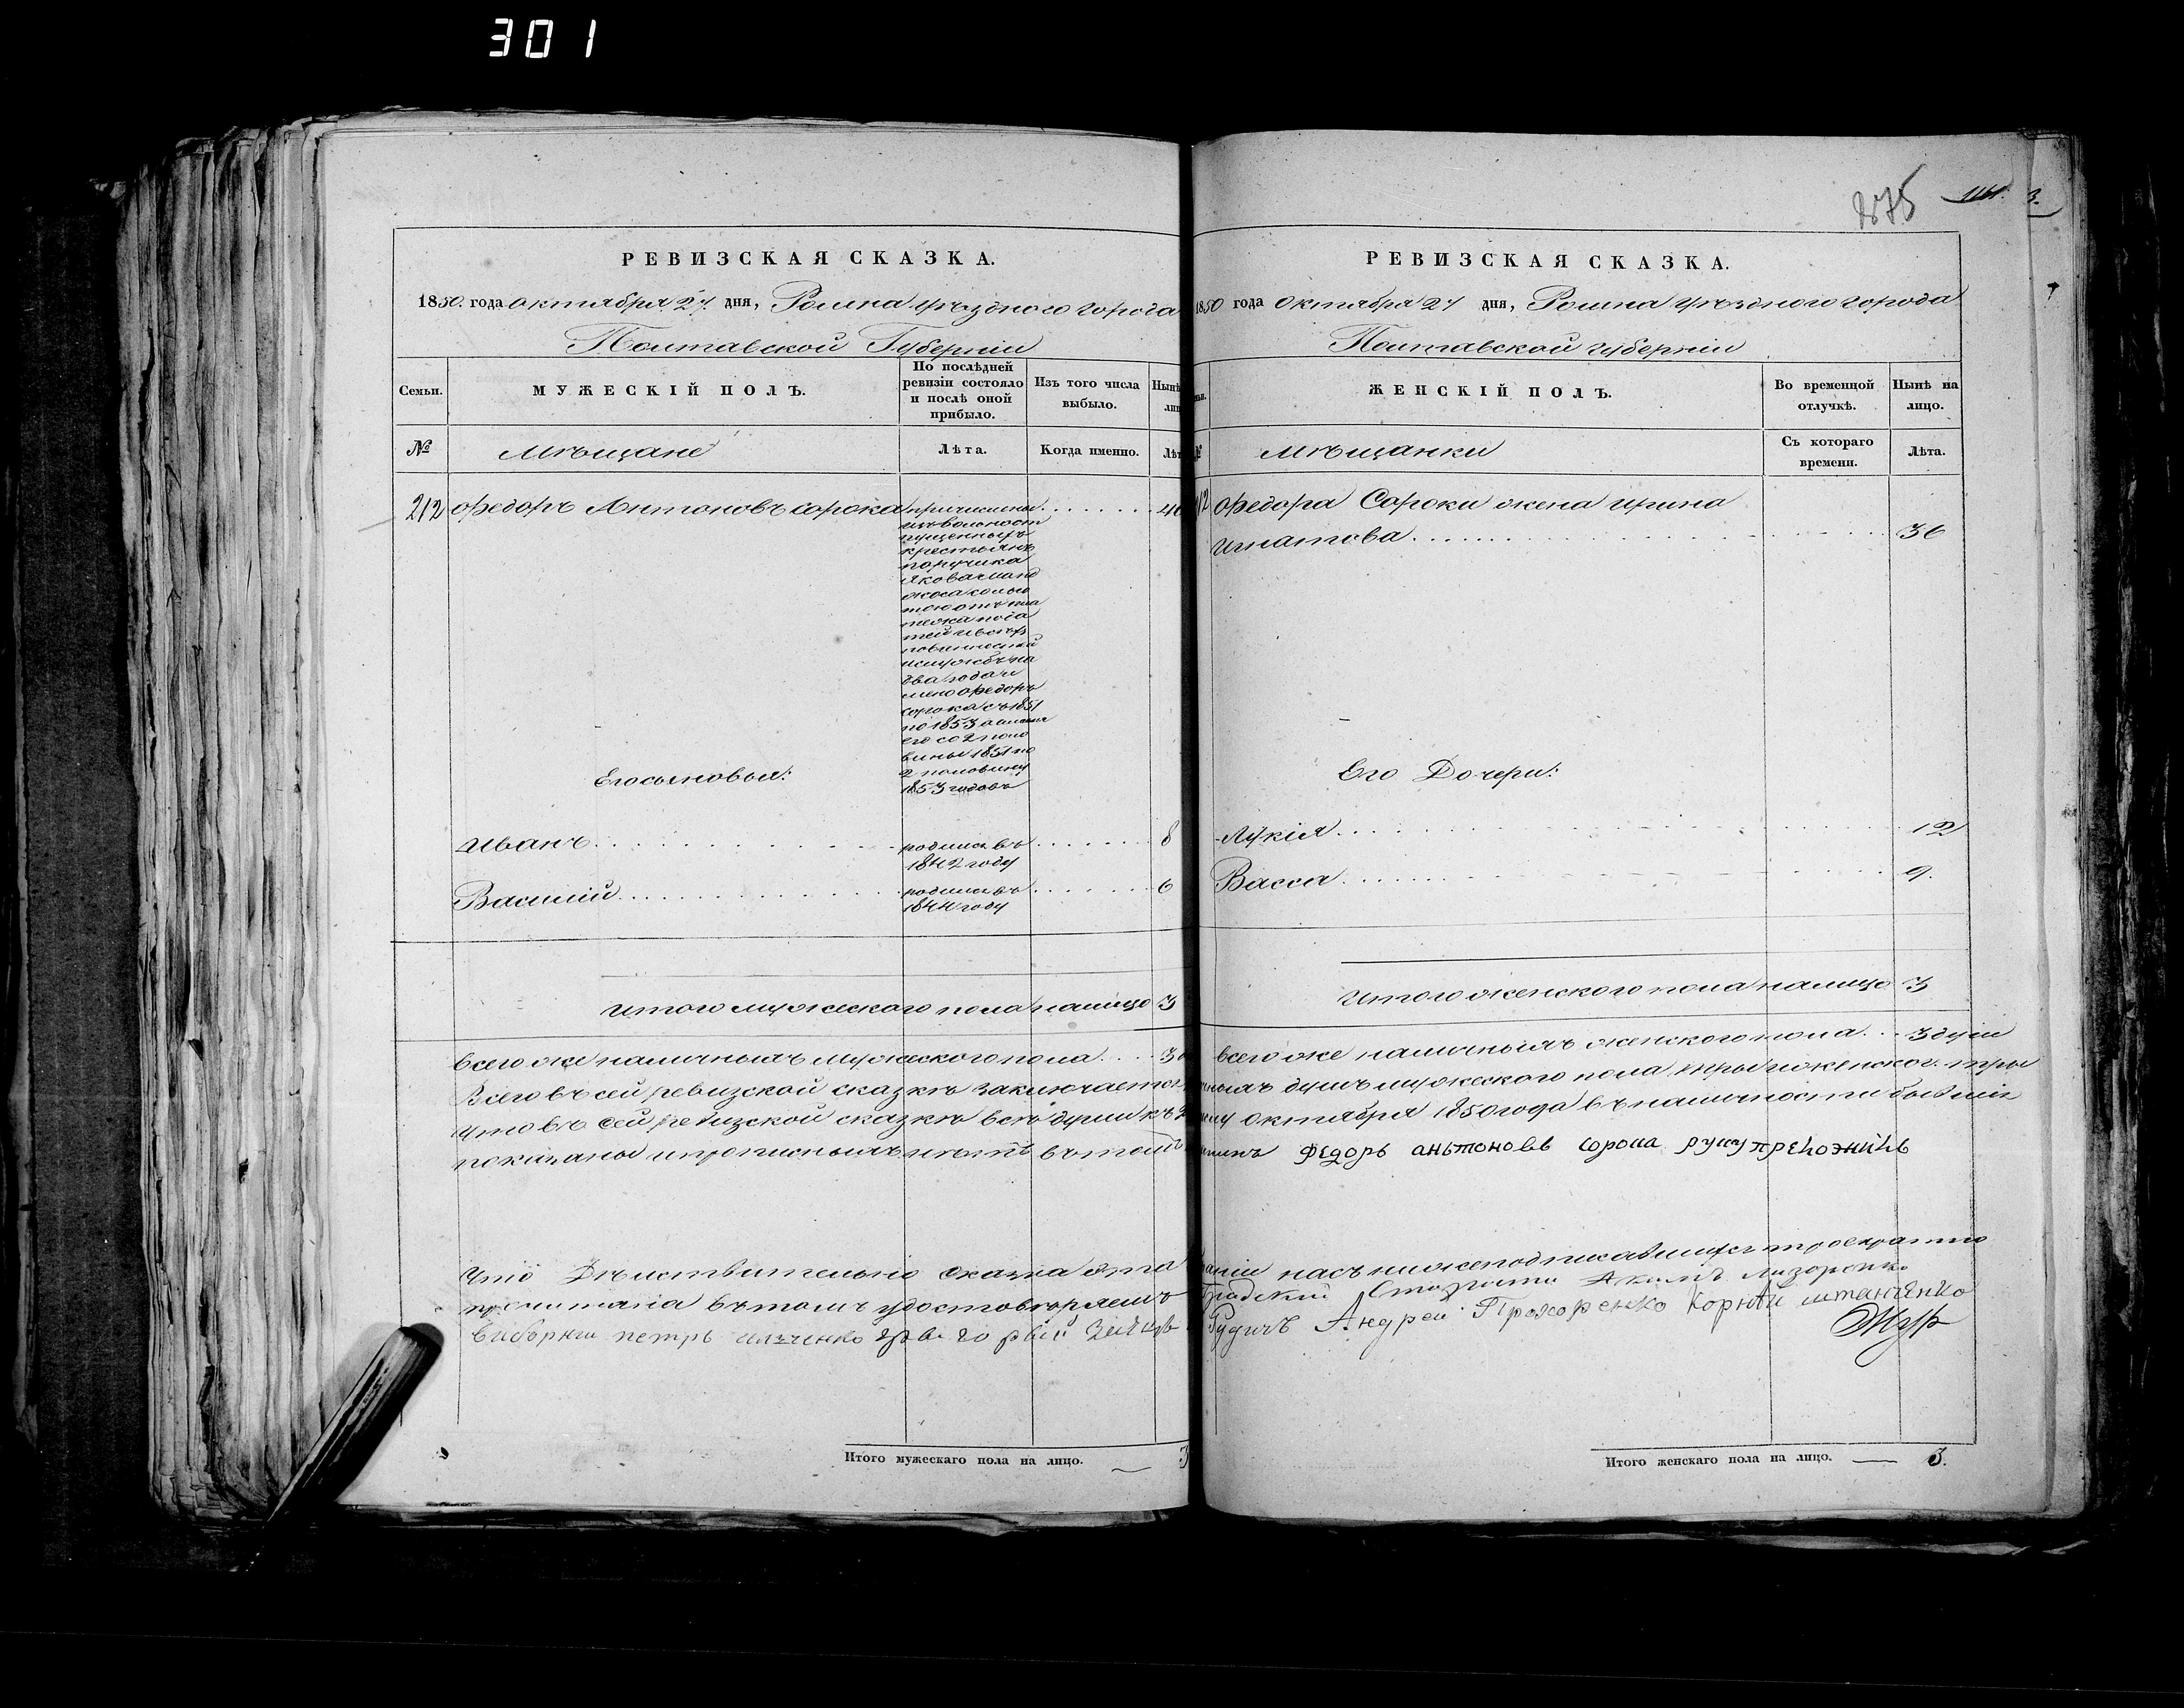 301
РЕВИЗСКАЯ СКАЗКА.
1850. года октября 27. дня, Ромна уѣзднаго города
Полтавской Губерніи
Семьи.
МУЖЕСКІЙ ПОЛЪ.
По послѣдней ревизіи состояло и послѣ оной прибыло.
Изъ того числа выбыло.
№
Мѣщане
Лѣта.
Когда именно.
212 Федоръ Антоновъ Сорока причисленъ
изъ вольноот
пущенныхъ
крестьянъ
поручика
Якова
два года
Федоръ
Сорока съ 1851
по 1853 а
его со 2 поло
вины 1851 по
2 половину
1853 годовъ
Его сыновья:
Иванъ родился въ 8
1842 году
Василій родился въ 6
1844 году
Итого мужескаго пола налицо 3
Всего же наличныхъ мужескаго пола 3
Всего въ сей ревизской сказкѣ заключается
Что въ сей ревизской сказкѣ всѣ души къ
показаны и прописныхъ нѣтъ въ томъ
Что Дѣйствительно сказка эта
прочитана въ томъ удостовѣряемъ
петръ
Итого мужескаго пола на лицо. 3
2875
РЕВИЗСКАЯ СКАЗКА.
1850 года Октября 27 дня, Ромна уѣзднаго города
Полтавской губерніи
ЖЕНСКІЙ ПОЛЪ.
Во временной отлучкѣ.
Нынѣ на лицо.
Мѣщанки
Съ котораго времени.
Лѣта.
Федора Сороки жена Ирина
Игнатова 36
Его Дочери:
Лукія 12
Васса 9.
Итого женскаго пола налицо 3
Всего же наличныхъ женскаго пола 3 души
душъ мужескаго пола три и женског. три
октября 1850 года въ наличности бывшія
Федоръ аньтоновъ сорока руку преложилъ
насъ нижеподписавшихся троекратно
Андрей Прохоренко
Итого женскаго пола на лицо. 3.